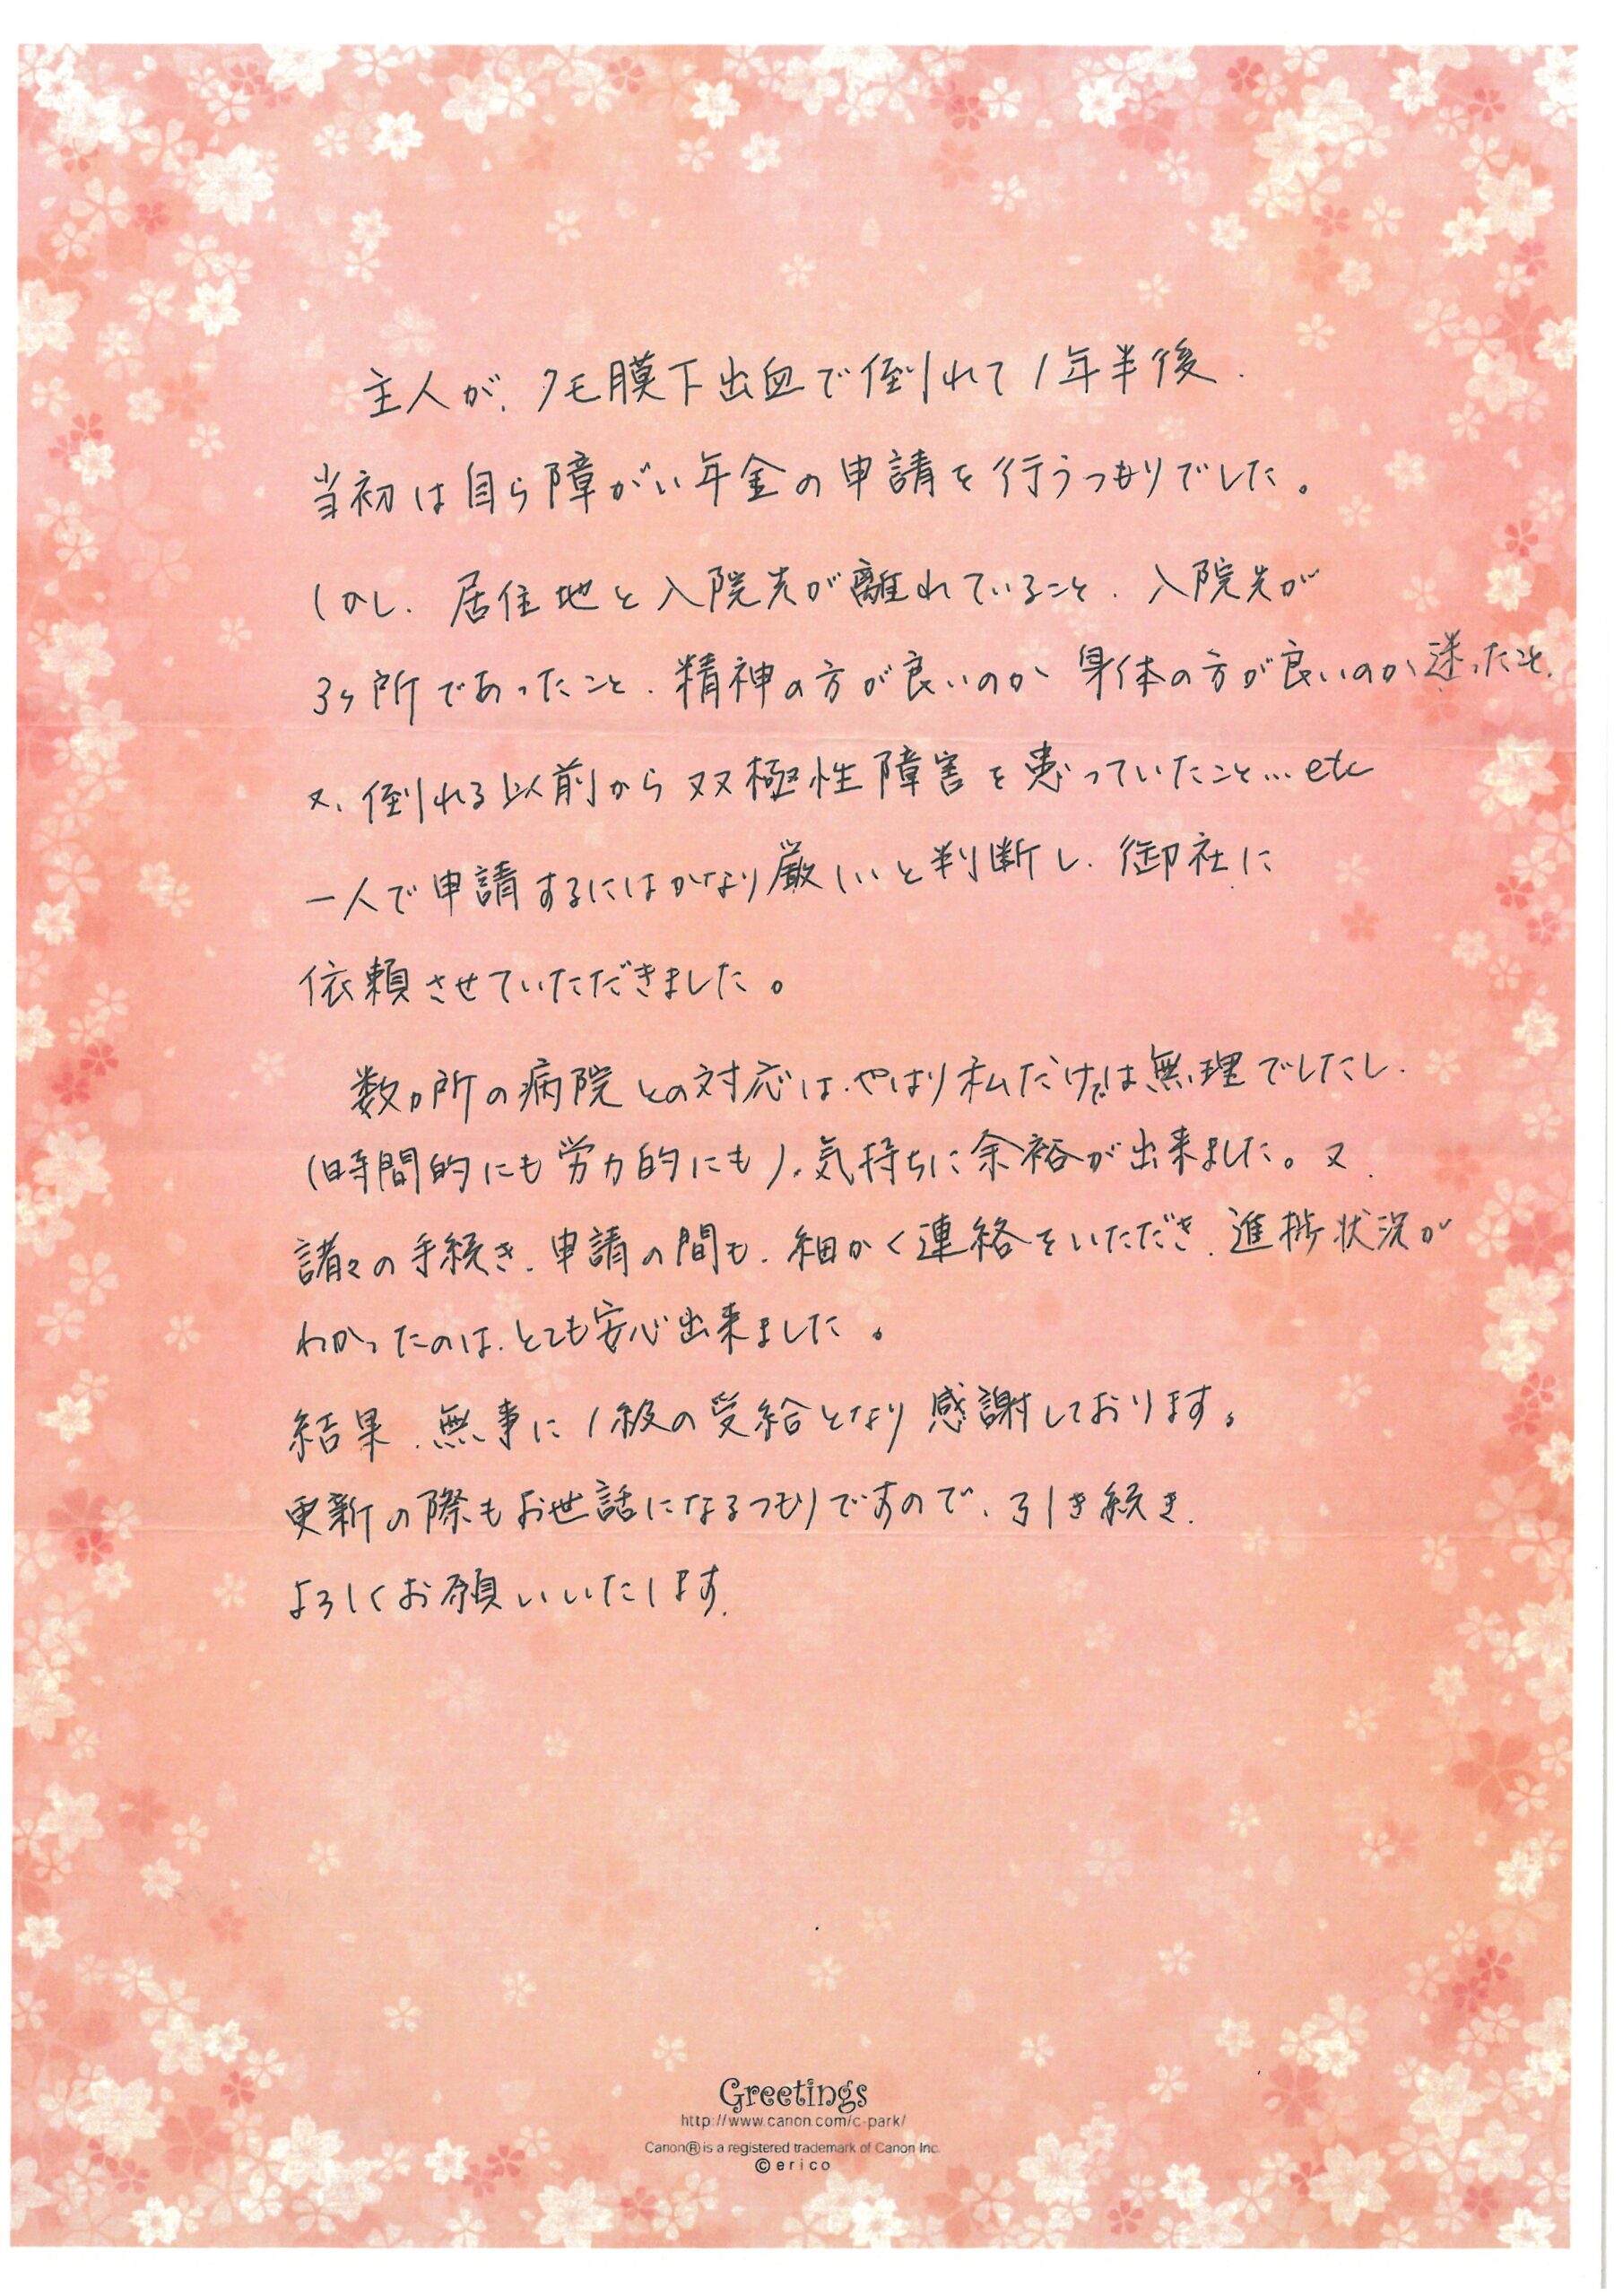 主人が、クモ膜下出血で倒れて1年半後、
当初は自ら障がい年金の申請を行うつもりでした。
しかし、居住地と入院先が離れていること、入院先が
3ヶ所であったこと、精神の方が良いのか身体の方が良いのか迷ったこと、
又、倒れる以前から双極性障害を患っていたこと…etc
一人で申請するにはかなり厳しいと判断し、御社に
依頼させていただきました。
数か所の病院との対応は、やはり私だけでは無理でしたし、
(時間的にも労力的にも)、気持ちに余裕が出来ました。又、
諸々の手続き、申請の間も、細かく連絡をいただき、進捗状況が
わかったのは、とても安心出来ました。
結果、無事に1級の受給となり感謝しております。
更新の際もお世話になるつもりですので、引き続き、
よろしくお願いいたします。
Greetings
http://www.canon.com/c-park/
Canon®is a registered trademark of Canon Inc.
©erico